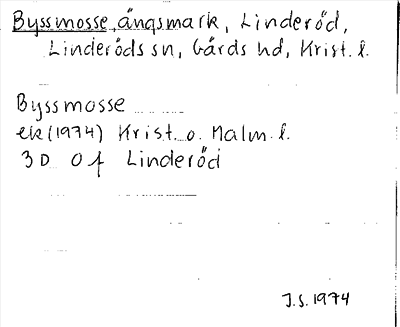 Byssmosse, ängsmark, Linderöd,
Linderöds sn, Gärds hd, Krist. l.
Byssmosse
ek (1974) Krist. o. Malm. l.
3D 0f Linderöd
J.S. 1974